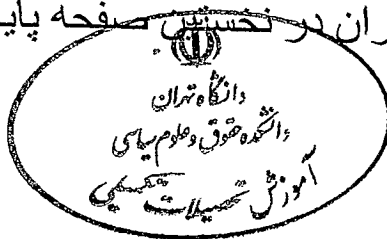 ران در نخستین صفحه پایا
دانگاه تهران
دانشکده حقوق و علوم سیاسی
آموزش تحصیلات تکمیلی